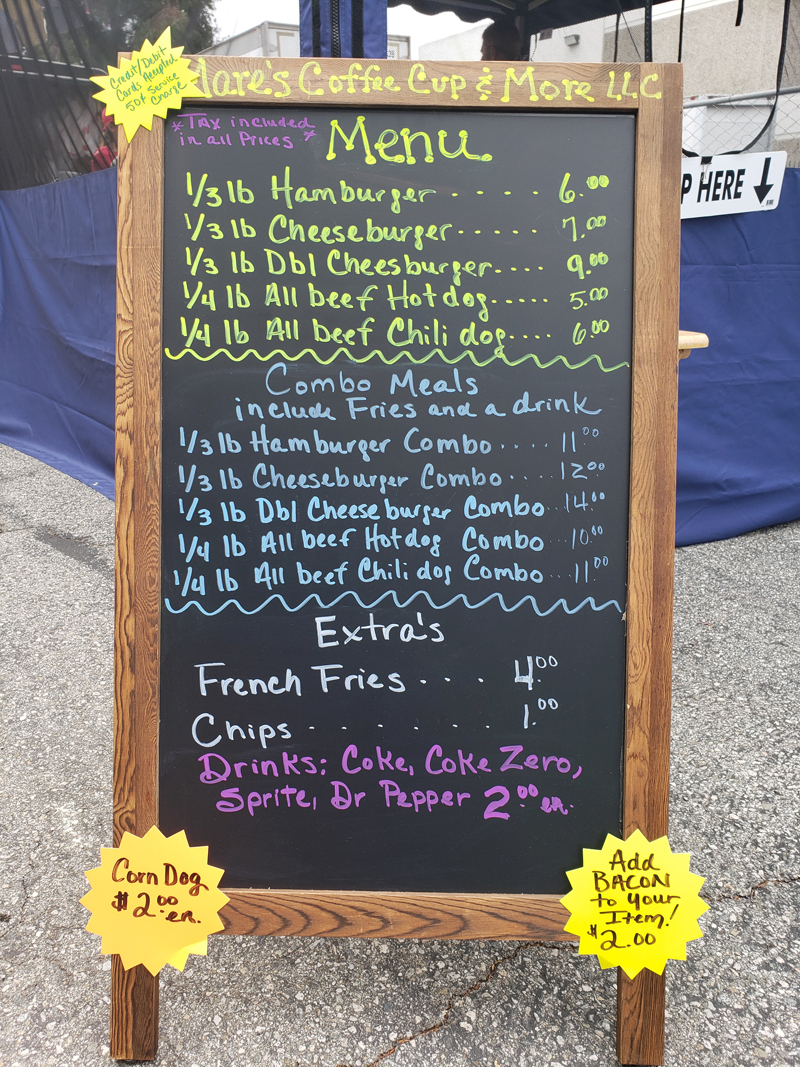 Credit/Debit
Cards Accepted
50¢ Service
Charge
Coffee Cup & More LLC
*Tax included
in all Prices *
Menu
P HERE
1/3 lb Hamburger . . . . 6.00
1/3 lb Cheeseburger . . . . . 7.00
1/3 lb Dbl Cheesburger.... 9.00
1/4 lb All beef Hotdog..... 5.00
1/4 lb All beef Chili dog.... 6.00
Combo Meals
include Fries and a drink
1/3 lb Hamburger Combo .... 11.00
1/3 lb Cheeseburger Combo.... 12.00
1/3 lb Dbl Cheeseburger Combo.. 14.00
1/4 lb All beef Hotdog Combo ...10.00
1/4 lb All beef Chili dog Combo ...11.00
Extra's
French Fries . . . . 4.00
Chips . . . . . . . 1.00
Drinks: Coke, Coke Zero,
Sprite, Dr Pepper 2.00 ea.
Corn Dog
$2.00 ea.
Add
BACON
to your
Item!
$2.00